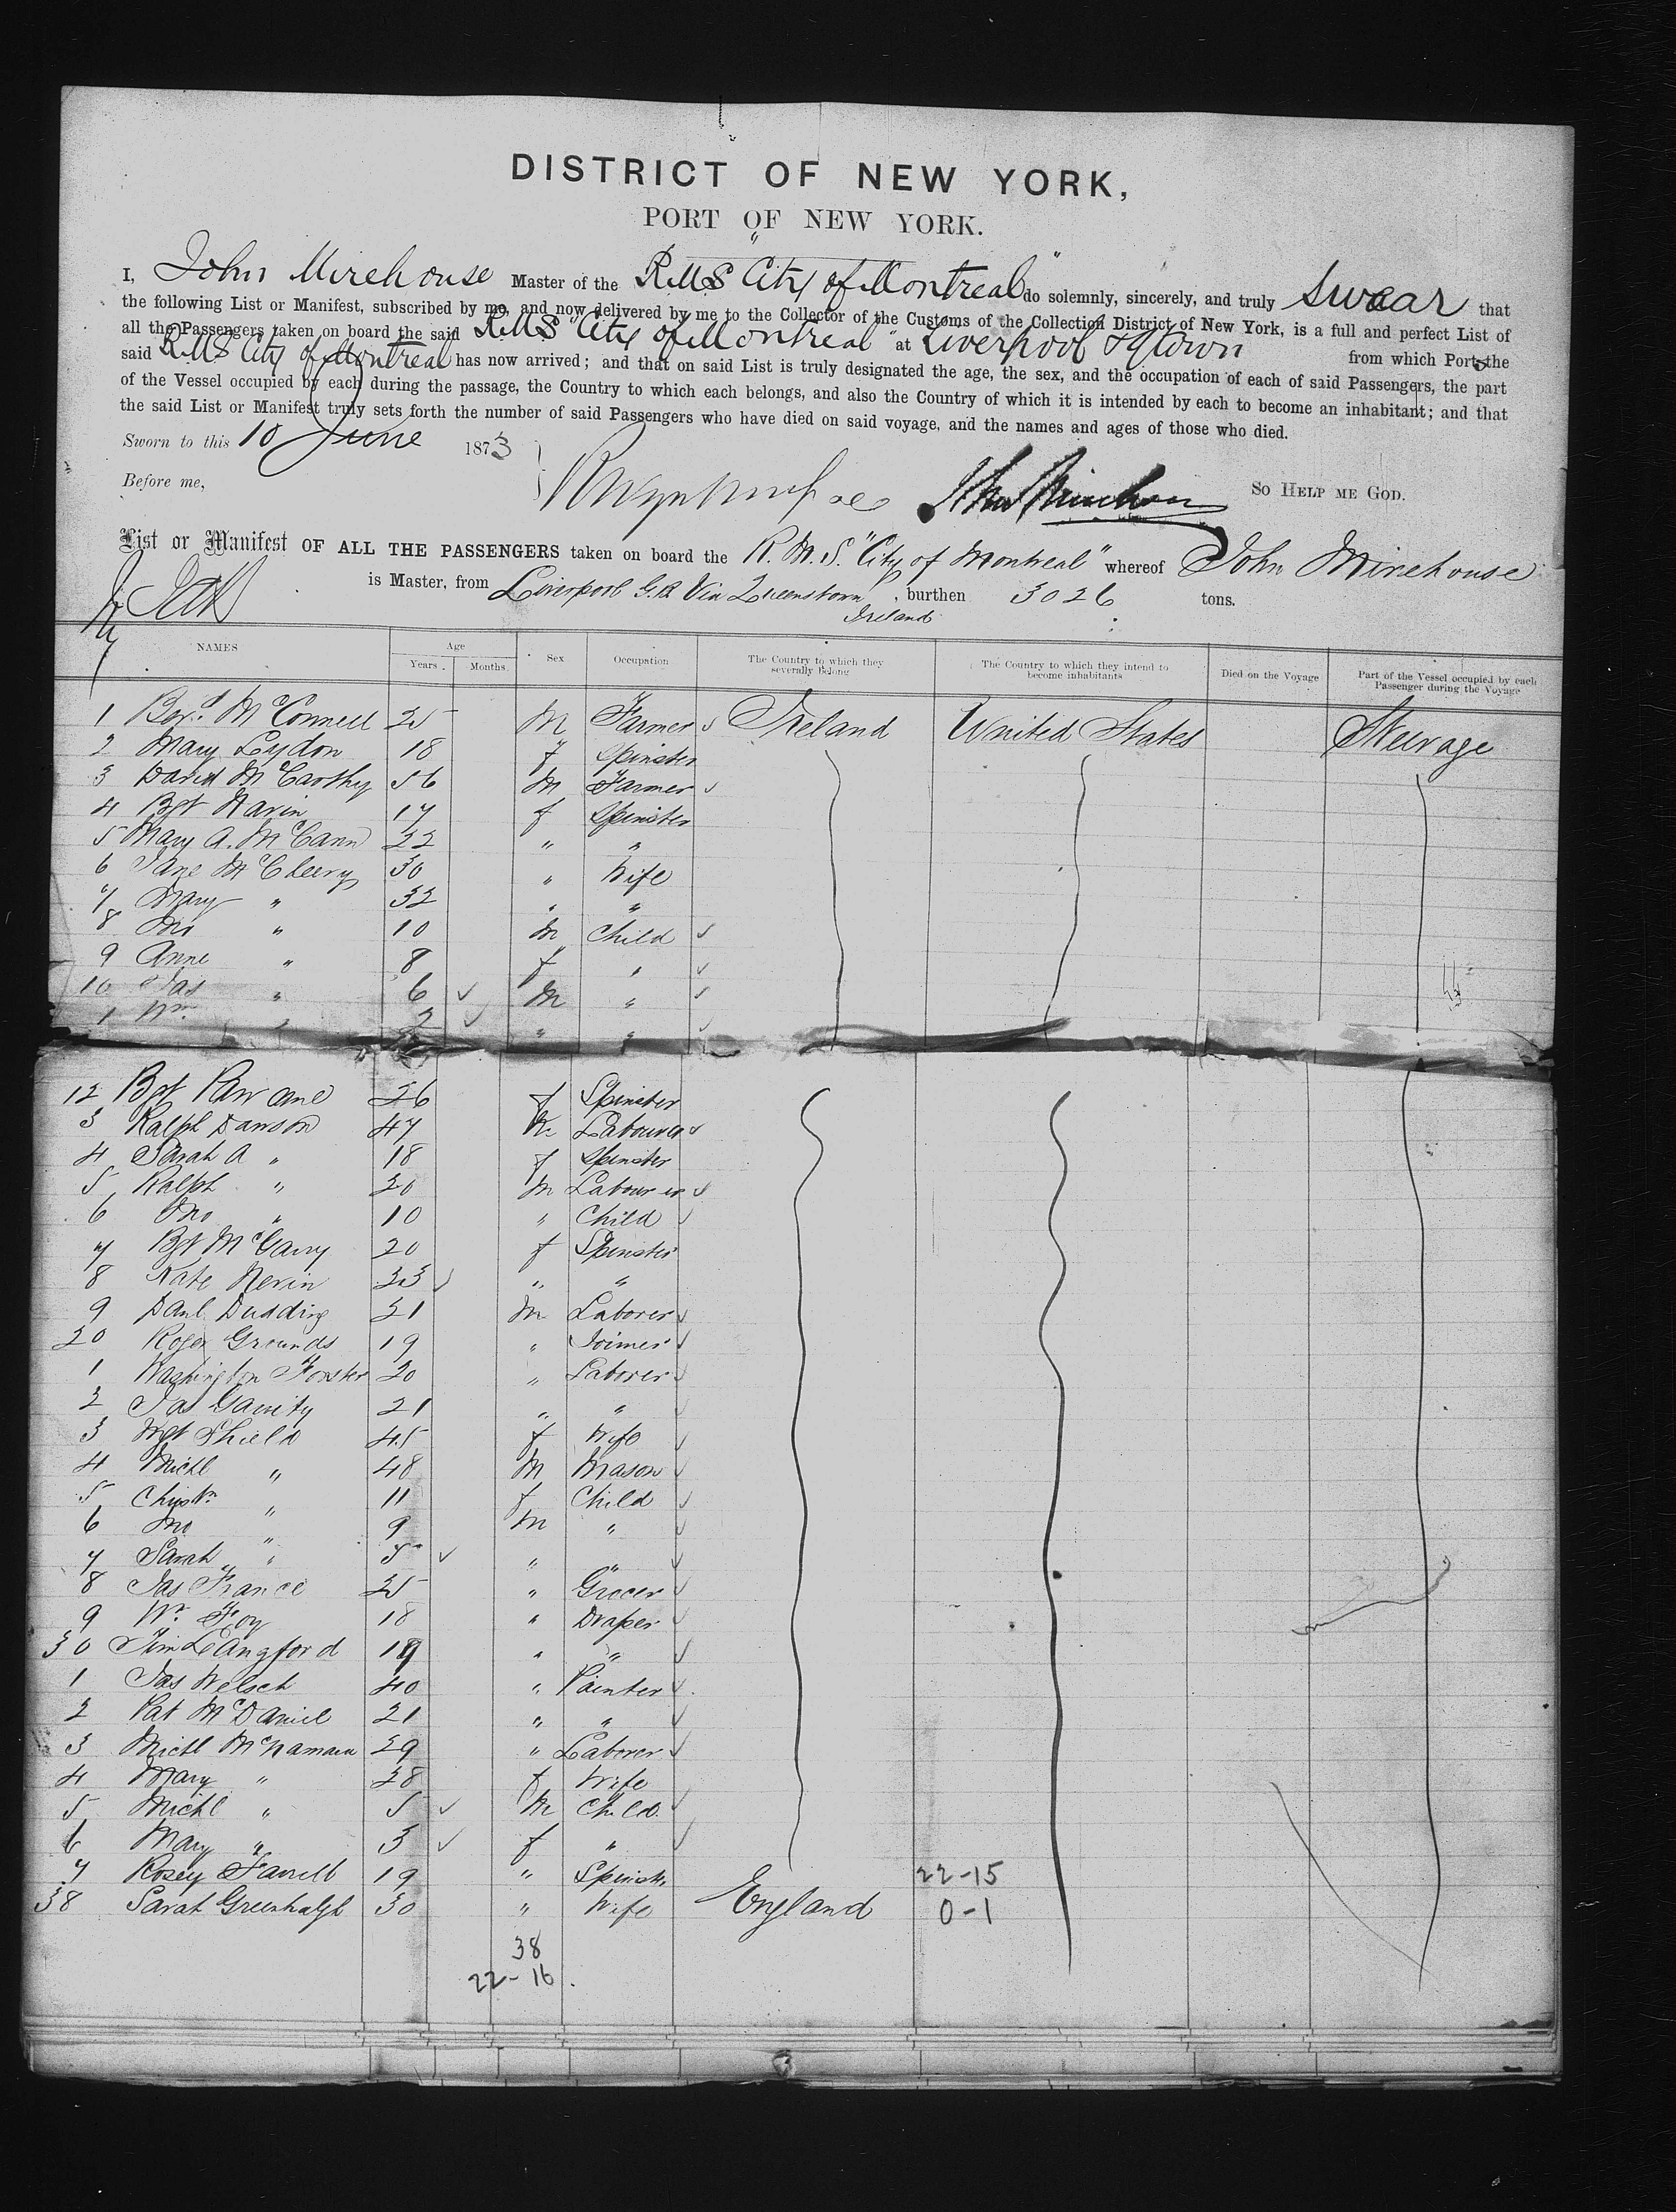 DISTRICT OF NEW YORK,
PORT OF NEW YORK.
I, John Mirehouse Master of the R.M.S "City of Montreal" do solemnly, sincerely, and truly swear that
the following List or Manifest, subscribed by me, and now delivered by me to the Collector of the Customs of the Collection District of New York, is a full and perfect List of
all the Passengers taken on board the said R.M.S "City of Montreal" at Liverpool & Qtown from which Ports the
said R.M.S City of Montreal has now arrived; and that on said List is truly designated the age, the sex, and the occupation of each of said Passengers, the part
of the Vessel occupied by each during the passage, the Country to which each belongs, and also the Country of which it is intended by each to become an inhabitant; and that
the said List or Manifest truly sets forth the number of said Passengers who have died on said voyage, and the names and ages of those who died.
Sworn to this 10 June 1873
Before me, So HELP ME GOD.
List or Manifest OF ALL THE PASSENGERS taken on board the R.M.S. "City of Montreal" whereof John Mirehouse
is Master, from Liverpool G.B. Via Queenstown Ireland, burthen 3026 tons.
NAMES Age Years. Months. Sex Occupation The Country to which they severally belong The Country to which they intend to become inhabitants Died on the Voyage Part of the Vessel occupied by each Passenger during the Voyage
1 McConnell 25 M Farmer Ireland United States Steerage
2 Mary Lydon 18 f Spinster
3 David McCarthy 56 M Farmer
4 Bgt Navin 17 f Spinster
5 Mary A. McCann 22 " "
6 Jane McCleery 30 " Wife
7 Mary " 32 " "
8 Jno " 10 M Child
9 Anne " 8 f "
10 Jas " 6 M "
1 Wm " 2 " "
12 Bgt 26 f Spinster
3 Ralph Dawson 47 M Labourer
4 Sarah A " 18 f Spinster
5 Ralph " 20 M Labourer
6 Jno " 10 " Child
7 Bgt McGarry 20 f Spinster
8 Kate Nevin 23 " "
9 Danl Dudding 21 M Laborer
20 Roger Grounds 19 " Joiner
1 Washington Forster 20 " Laborer
2 Jas Garrity 21 " "
3 Mgt Shield 45 f Wife
4 Michl " 48 M Mason
5 Christn " 11 f Child
6 Jno " 9 M "
7 Sarah " 5 " "
8 Jas France 25 " Grocer
9 Wm Foy 18 " Draper
30 Jim Langford 19 " "
1 Jas Welsch 40 " Painter
2 Pat McDaniel 21 " "
3 Michl McNamara 29 " Laborer
4 Mary " 28 f Wife
5 Michl " 5 M Child
6 Mary " 3 f "
7 Rosey Farrell 19 " Spinst. 22-15
38 Sarah Greenhalgh 30 " Wife England 0-1
38
22-16